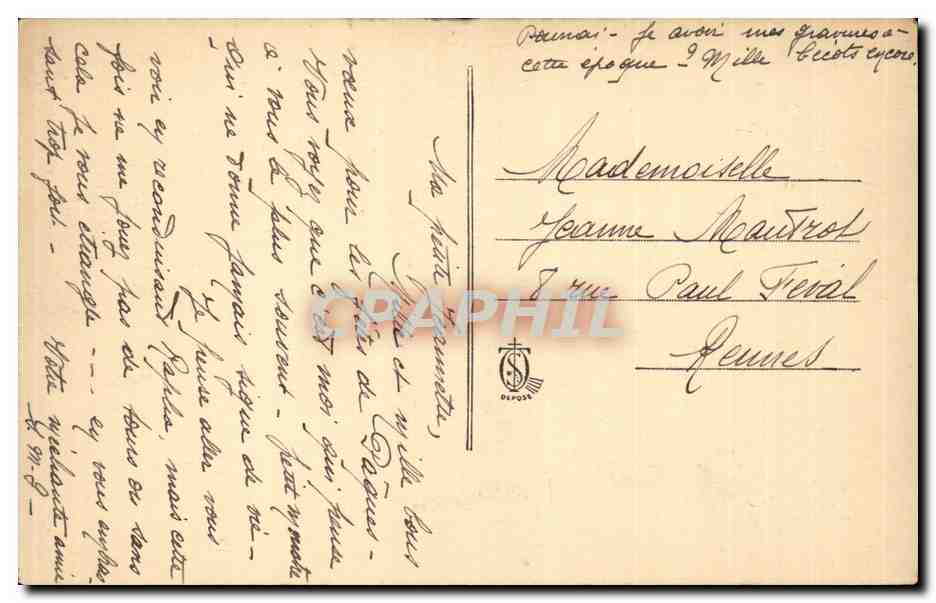 Ma petite Jeannette,
Mille et mille bons
vœux pour les fêtes de Pâques -
Vous voyez que c'est moi qui pense
à vous le plus souvent - petit monstre
qui ne donne jamais signe de vie -
Je pense aller vous
voir en reconduisant Raphia, mais cette
fois ne me jouez pas de tours ou sans
cela je vous étrangle --- en vous embras-
sant trop fort - Votre méchante amie
Pourrai-je avoir mes gravures à
cette époque ? Mille bécots encore.
Mademoiselle
Jeanne Mautrot
8 rue Paul Feval
Rennes
DEPOSE
CPAPHIL